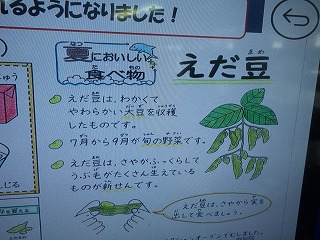 れるようになりました！
夏においしい
食べ物
えだ豆
えだ豆は、わかくて
やわらかい大豆を収穫
したものです。
7月から9月が旬の野菜です。
えだ豆は、さやがふっくらして
うぶ毛がたくさん生えている
ものが新せんです。
えだ豆は、さやから実を
出して食べましょう。